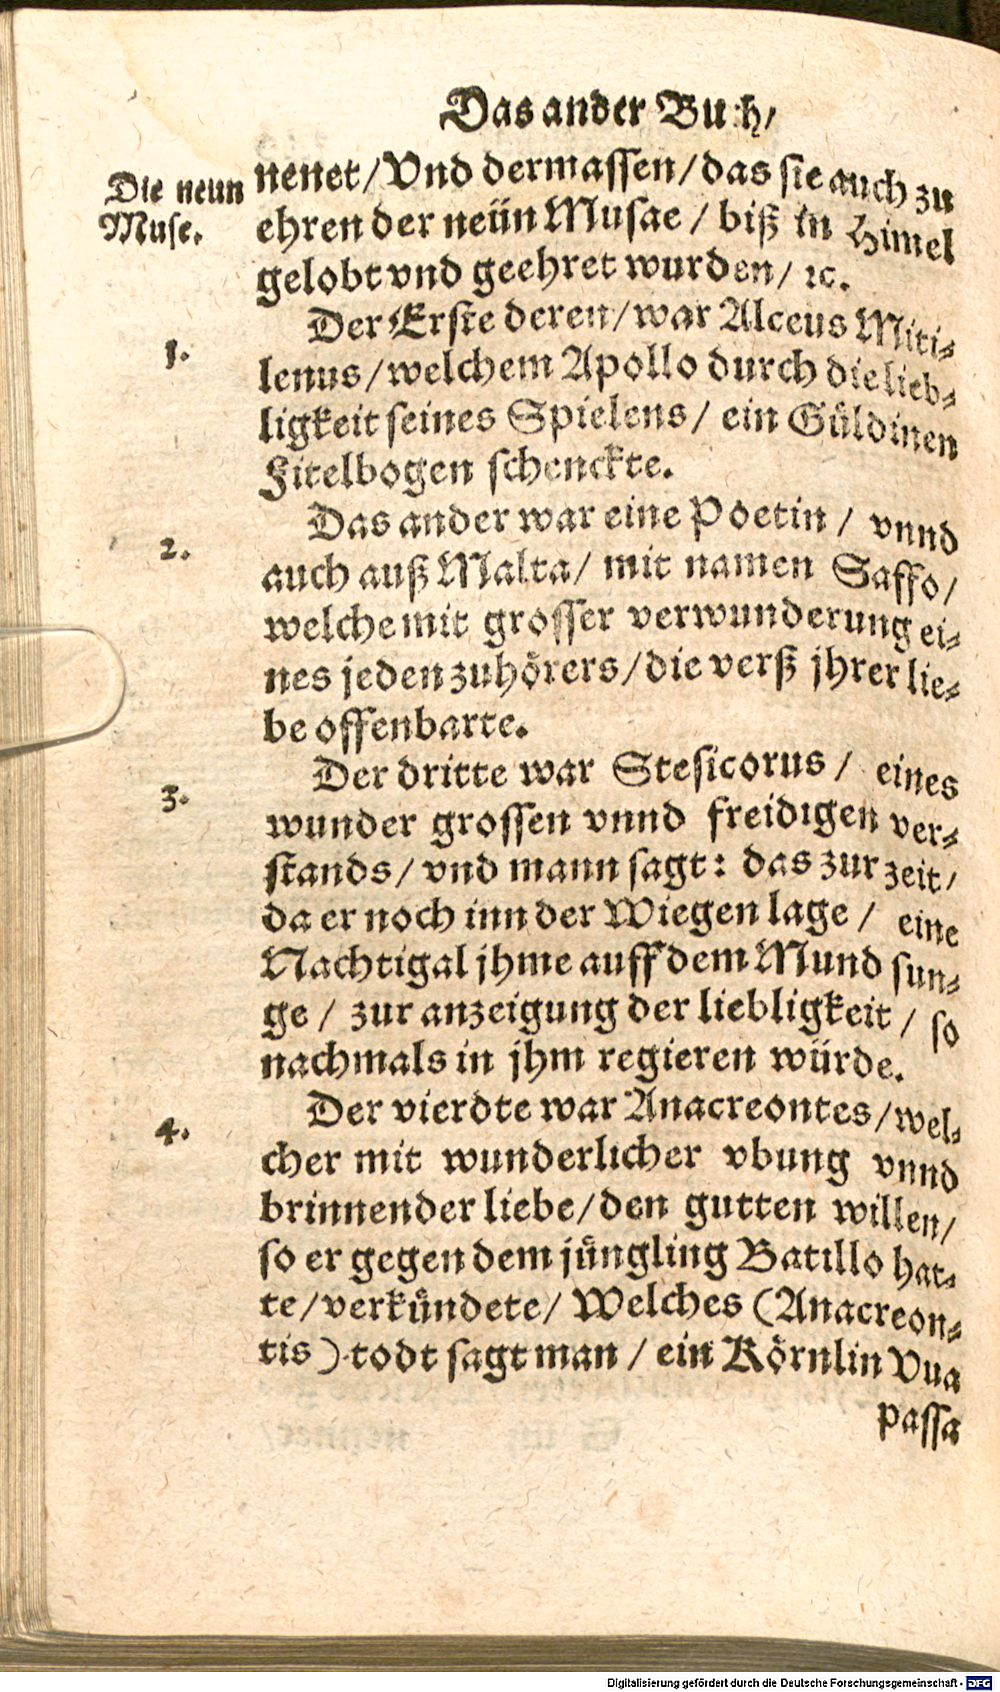 Das ander Buch/
Die neun
Muse.
nenet/Vnd dermassen/das sie auch zu
ehren der neün Musae / biß in Himel
gelobt vnd geehret wurden/ ꝛc.
1.
Der Erste deren/war Alceus Miti-
lenus/welchem Apollo durch die lieb-
ligkeit seines Spielens/ ein Güldinen
Fitelbogen schenckte.
2.
Das ander war eine Poetin / vnnd
auch auß Malta/ mit namen Saffo/
welche mit grosser verwunderung ei-
nes jeden zuhörers/die verß jhrer lie-
be offenbarte.
3.
Der dritte war Stesicorus / eines
wunder grossen vnnd freidigen ver-
stands/ vnd mann sagt: das zur zeit/
da er noch inn der Wiegen lage / eine
Nachtigal jhme auff dem Mund sun-
ge / zur anzeigung der liebligkeit / so
nachmals in jhm regieren würde.
4.
Der vierdte war Anacreontes/wel-
cher mit wunderlicher vbung vnnd
brinnender liebe/den gutten willen/
so er gegen dem jüngling Batillo hat-
te/verkündete/ Welches (Anacreon-
tis) todt sagt man / ein Körnlin Vua
passa
Digitalisierung gefördert durch die Deutsche Forschungsgemeinschaft - DFG